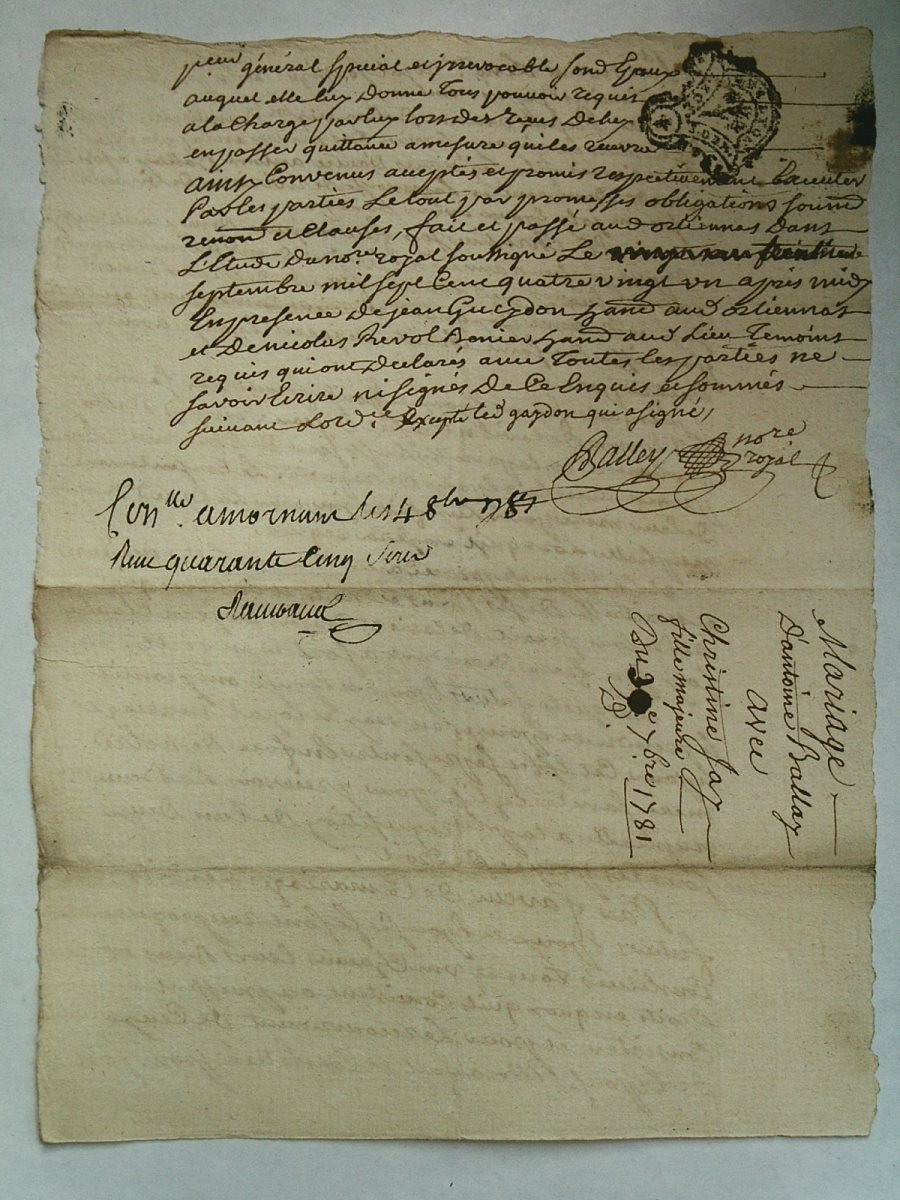 pceur général spécial et irrevocable sond Epoux
auquel elle luy Donne Tous pouvoir requis
a la Charge par luy lors des reçus De luy
en passer quittance a mesure qu'il les
ainsy Convenus acceptés et promis respectivement Executer
Par les parties Le tout par promesses obligations soumd
renond et Clauses, fait et passé aud ortiennas Dans
L'Etude Du nore royal soussigné Le trentieme
septembre mil sept Cent quatre vingt un après midy
En presence De jean Gueydon hand aud ortiennas
et De nicolas Revol Bonier hand aud Lieu Temoins
requis qui ont Declarés avec Toutes les parties ne
savoir Ecrire ni signés De Ce Enquis et sommés
suivant L'ord.ce Excepté led gaydon qui a signé,
Balley nore
royal
Conlle a mornant les 4 8bre 1781
Reçu quarante Cinq sous
Mariage
D'antoine Ballay
avec
Christine Jay
fille majeure
Du 30e 7bre 1781